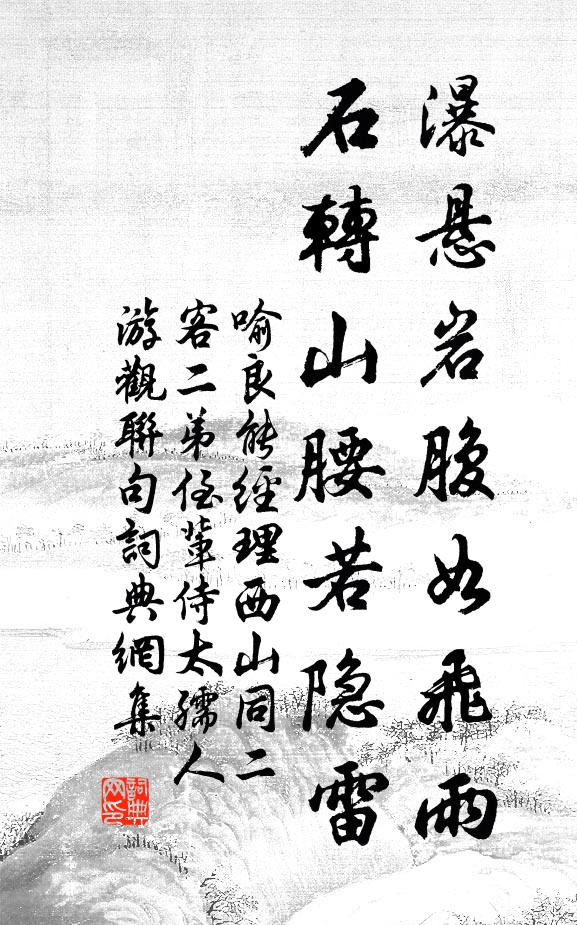 瀑悬岩腹如飛雨
石轉山腰若隐雷
喻良能經理西山同二
客二弟侄輩侍太孺人
游觀聯句詞典網集
詞典網印